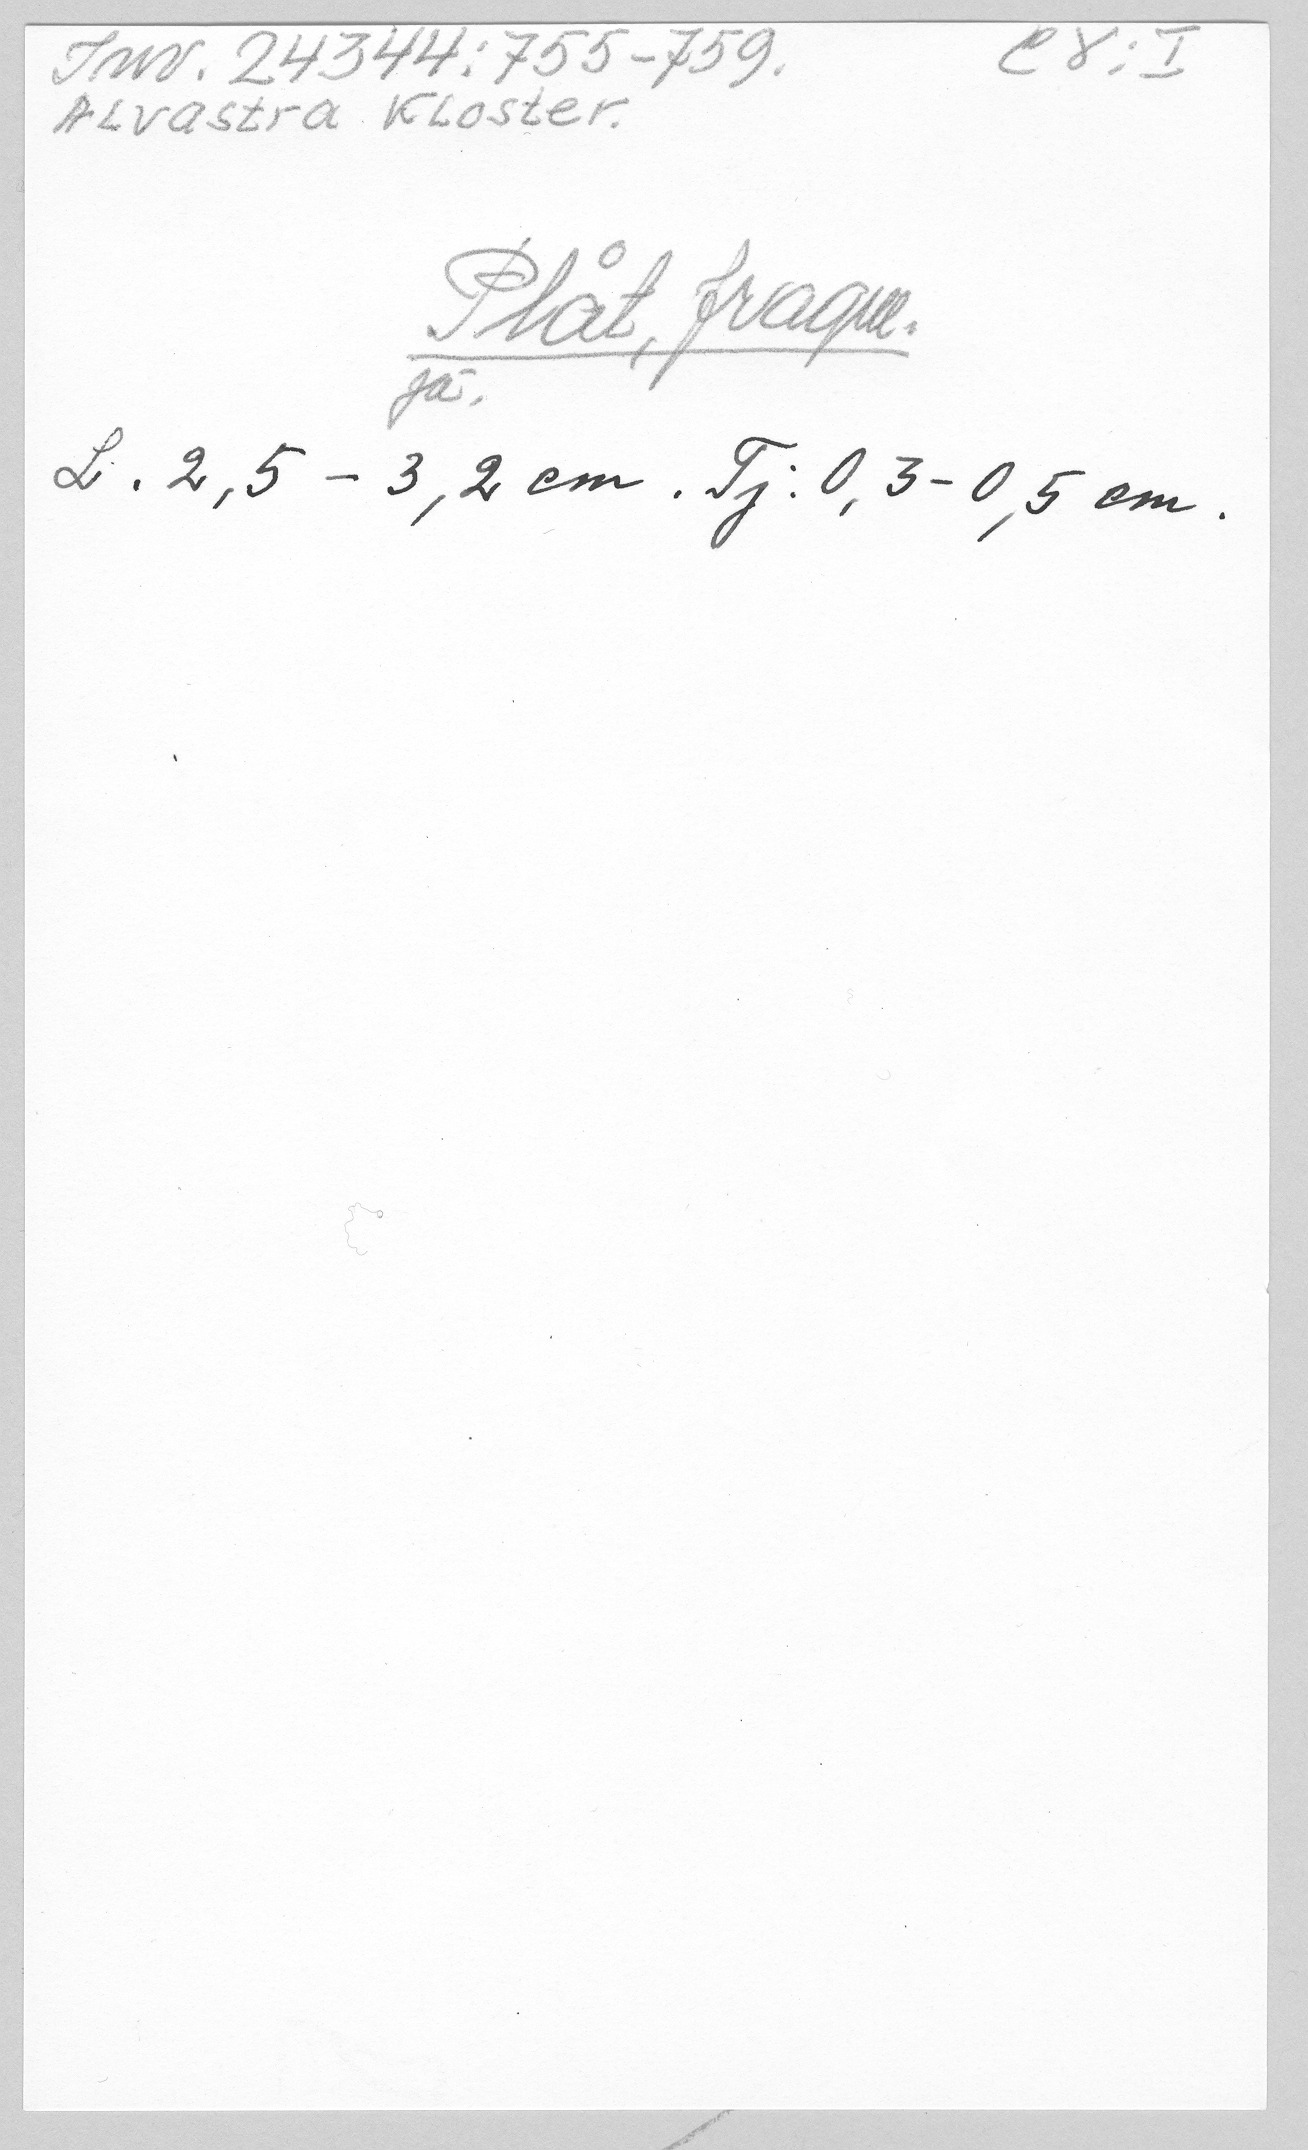 Inv. 24344:755-759. C8:I
Alvastra Kloster.
Plåt, fragm.
jä.
L. 2,5 - 3,2 cm. Tj: 0,3-0,5 cm.